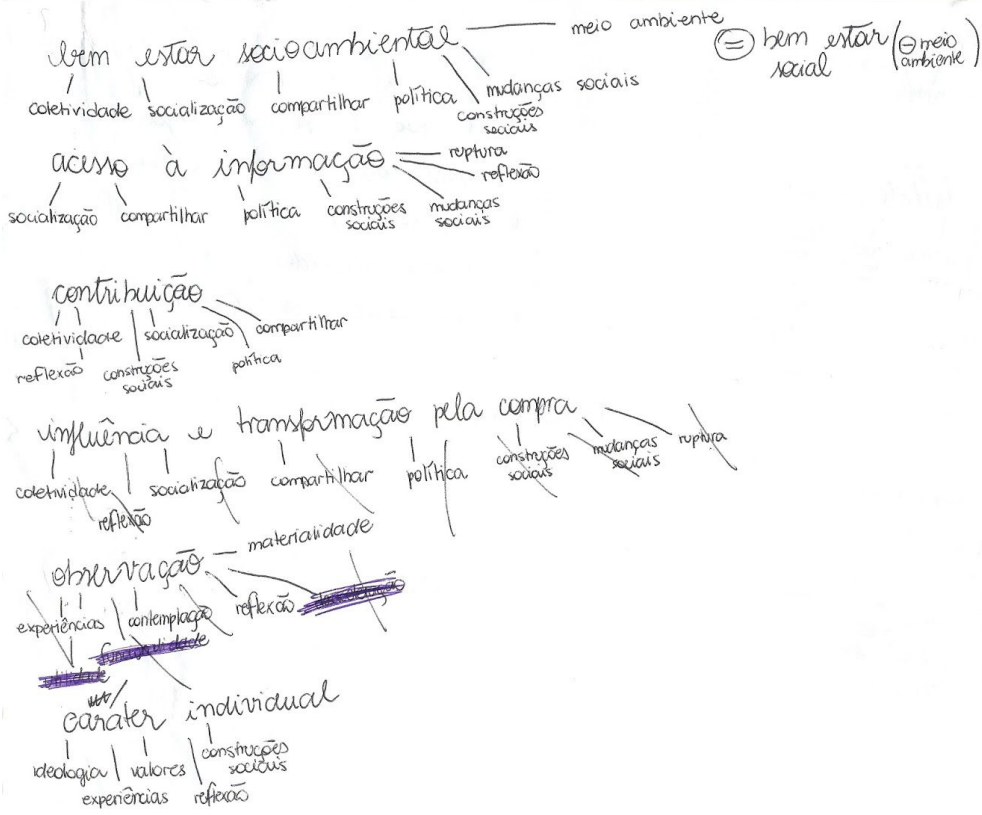 bem estar socioambiental
meio ambiente
= bem estar social (⊖ meio ambiente)
coletividade socialização compartilhar política mudanças sociais
construções sociais
acesso à informação
ruptura
reflexão
socialização compartilhar política construções sociais mudanças sociais
contribuição
coletividade socialização compartilhar
reflexão construções sociais política
influência e transformação pela compra
coletividade socialização compartilhar política construções sociais mudanças sociais ruptura
reflexão
observação
materialidade
experiências contemplação reflexão
funcionalidade
utilidade
carater individual
ideologia valores construções sociais
experiências reflexão